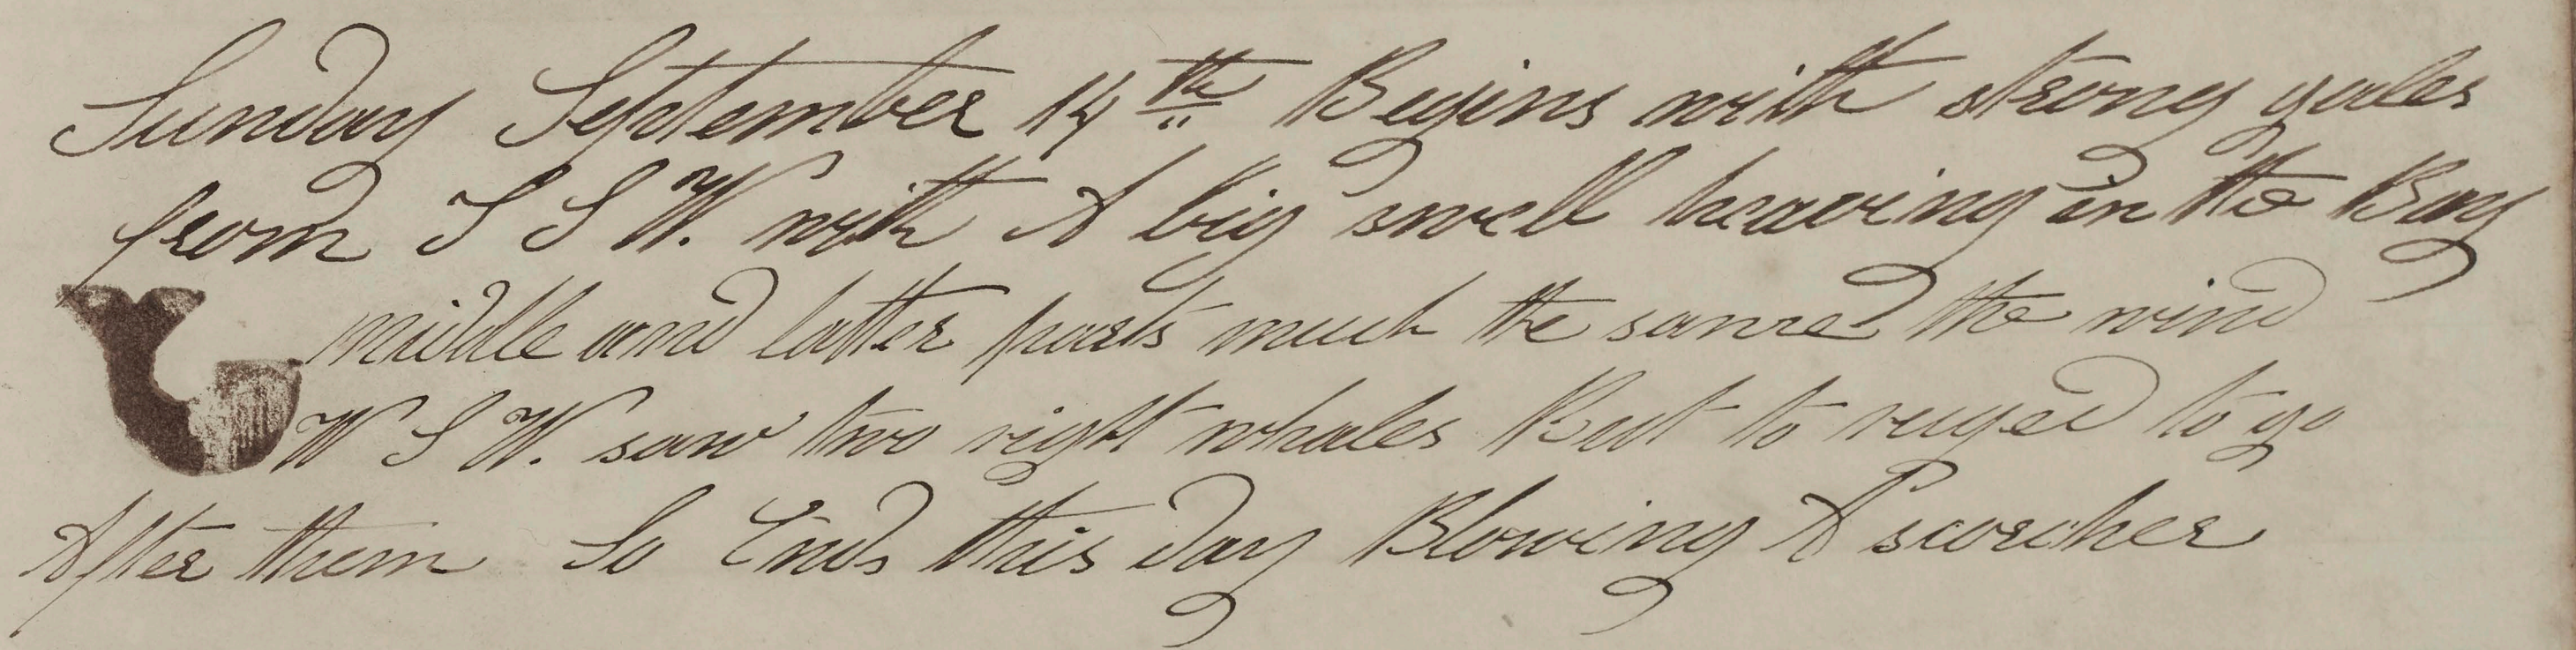 Sunday September 14th Begins with strong gales
from S S W. with A big swell heaving in the Bay
middle and latter parts much the same the wind
W S W. saw two right whales But to ruged to go
After them So Ends this day Blowing A scorcher